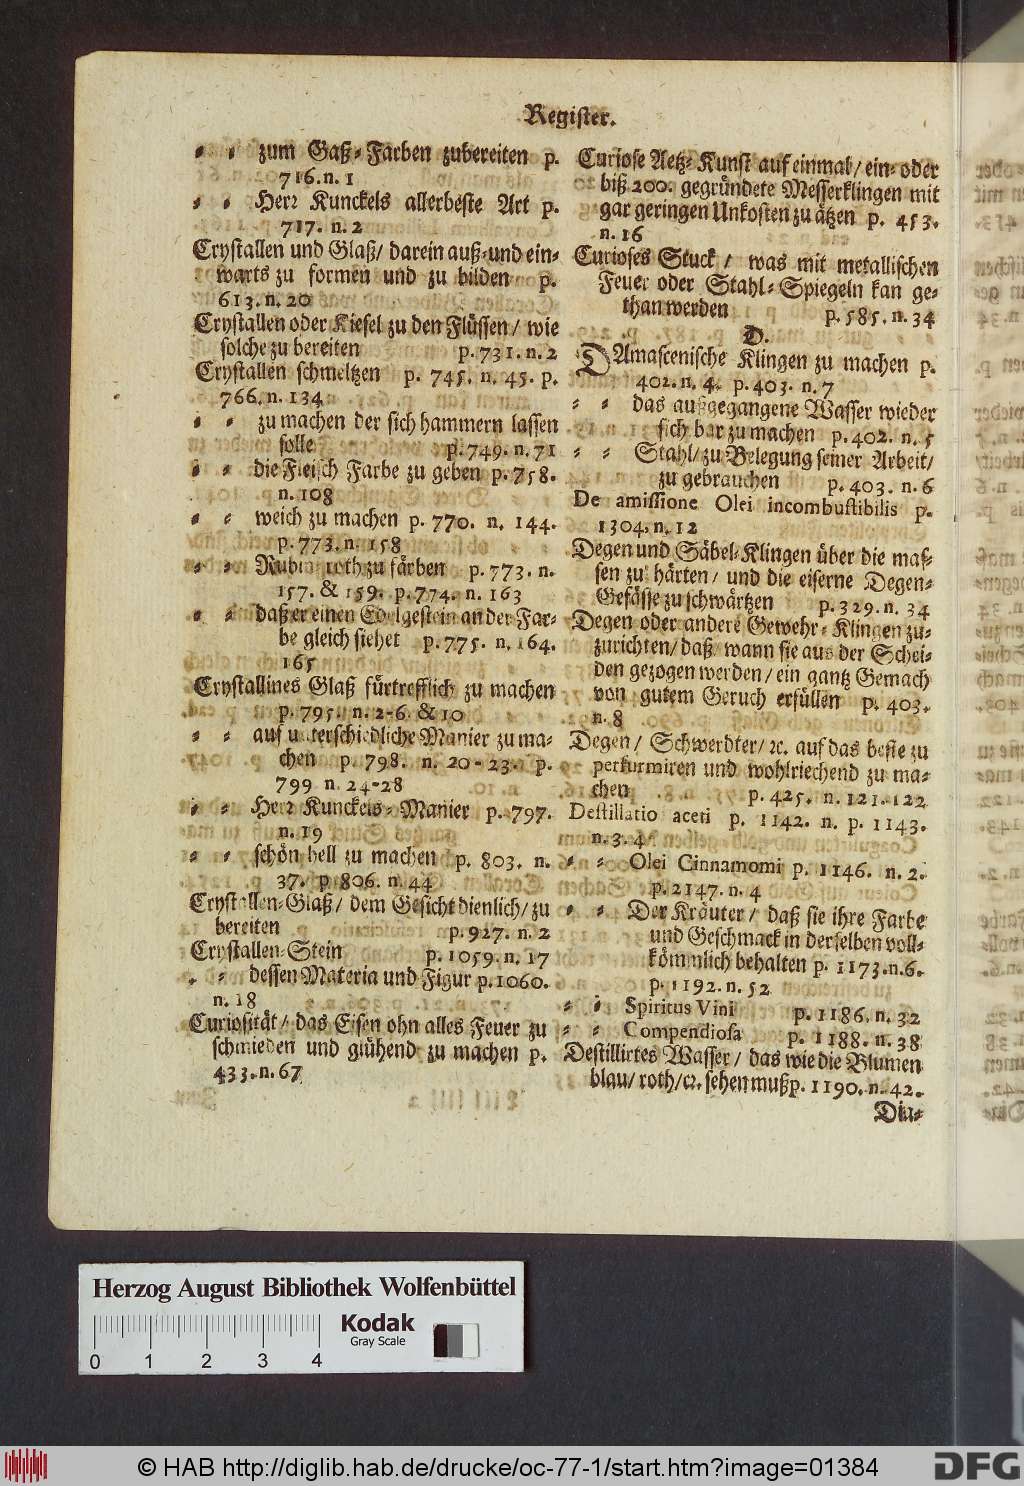 Register.
⸗ ⸗ zum Gaß⸗Farben zubereiten p.
716. n. 1
⸗ ⸗ Herꝛ Kunckels allerbeste Art p.
717. n. 2
Crystallen und Glaß/ darein auß⸗und ein⸗
warts zu formen und zu bilden p.
613. n. 20
Crystallen oder Kiesel zu den Flüssen/ wie
solche zu bereiten p. 731. n. 2
Crystallen schmeltzen p. 745. n. 45. p.
766. n. 134
⸗ ⸗ zu machen der sich hammern lassen
solle p. 749. n. 71
⸗ ⸗ die Fleisch Farbe zu geben p. 758.
n. 108
⸗ ⸗ weich zu machen p. 770. n. 144.
p. 773. n. 158
⸗ ⸗ Rubin roth zu färben p. 773. n.
157. & 159. p. 774. n. 163
⸗ ⸗ daß er einen Edelgestein an der Far⸗
be gleich siehet p. 775. n. 164.
165
Crystallines Glaß fürtrefflich zu machen
p. 795. n. 2-6. & 10
⸗ ⸗ auf unterschiedliche Manier zu ma⸗
chen p. 798. n. 20-23. p.
799 n. 24-28
⸗ ⸗ Herꝛ Kunckels⸗Manier p. 797.
n. 19
⸗ ⸗ schön hell zu machen p. 803. n.
37. p 806. n. 44
Crystallen⸗Glaß/ dem Gesicht dienlich/ zu
bereiten p. 927. n. 2
Crystallen⸗Stein p. 1059. n. 17
⸗ ⸗ dessen Materia und Figur p. 1060.
n. 18
Curiosität/ das Eisen ohn alles Feuer zu
schmieden und glühend zu machen p.
433. n. 67
Curiose Aetz⸗Kunst auf einmal/ ein⸗ oder
biß 200. gegründete Messerklingen mit
gar geringen Unkosten zu ätzen p. 453.
n. 16
Curioses Stuck/ was mit metallischen
Feuer oder Stahl⸗Spiegeln kan ge⸗
than werden p. 585. n. 34
D.
DAmascenische Klingen zu machen p.
402. n. 4. p. 403. n. 7
⸗ ⸗ das außgegangene Wasser wieder
sichbar zu machen p. 402. n. 5
⸗ ⸗ Stahl/ zu Belegung seiner Arbeit/
zu gebrauchen p. 403. n. 6
De amissione Olei incombustibilis p.
1304. n. 12
Degen und Säbel⸗Klingen über die maß⸗
sen zu härten/ und die eiserne Degen⸗
Gefässe zu schwärtzen p. 329. n. 34
Degen oder andere Gewehr⸗Klingen zu⸗
zurichten/ daß/ wann sie aus der Schei⸗
den gezogen werden/ ein gantz Gemach
von gutem Geruch erfüllen p. 403.
n. 8
Degen/ Schwerdter/ ꝛc. auf das beste zu
perfumiren und wohlriechend zu ma⸗
chen p. 425. n. 121. 122
Destillatio aceti p. 1142. n. p. 1143.
n. 3. 4
⸗ ⸗ Olei Cinnamomi p. 1146. n. 2.
p. 2147. n. 4
⸗ ⸗ Der Kräuter/ daß sie ihre Farbe
und Geschmack in derselben voll⸗
kömmlich behalten p. 1173. n. 6.
p. 1192. n. 52
⸗ ⸗ Spiritus Vini p. 1186. n. 32
⸗ ⸗ Compendiosa p. 1188. n. 38
Destillirtes Wasser/ das wie die Blumen
blau/ roth/ ꝛc. sehen muß p. 1190. n. 42.
Din⸗
Herzog August Bibliothek Wolfenbüttel
Kodak
Gray Scale
0 1 2 3 4
© HAB http://diglib.hab.de/drucke/oc-77-1/start.htm?image=01384
DFG